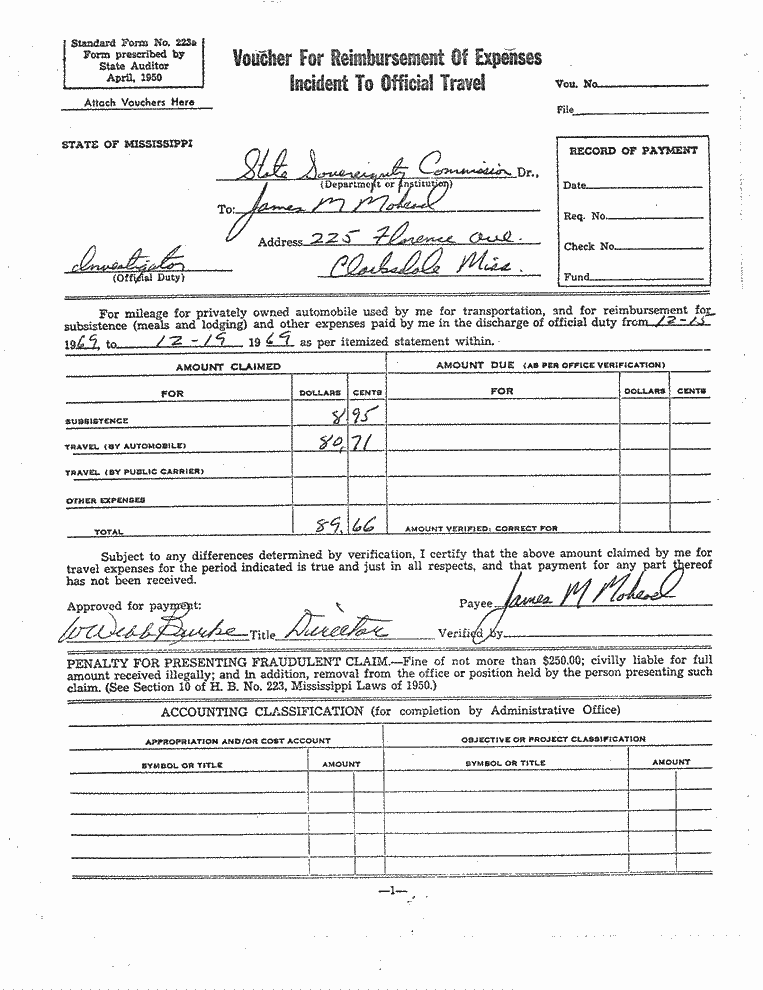 Standard Form No. 223a
Form prescribed by
State Auditor
April, 1950
Attach Vouchers Here
Voucher For Reimbursement Of Expenses
Incident To Official Travel
Vou. No.
File
STATE OF MISSISSIPPI
State Sovereignty Commission Dr.,
(Department or Institution)
To: James M Mohead
Address 225 Florence ave.
Clarksdale Miss.
Investigator
(Official Duty)
RECORD OF PAYMENT
Date
Req. No.
Check No.
Fund
For mileage for privately owned automobile used by me for transportation, and for reimbursement for
subsistence (meals and lodging) and other expenses paid by me in the discharge of official duty from 12-15
1969, to 12-19 1969 as per itemized statement within.
AMOUNT CLAIMED AMOUNT DUE (AS PER OFFICE VERIFICATION)
FOR DOLLARS CENTS FOR DOLLARS CENTS
SUBSISTENCE 8 95
TRAVEL (BY AUTOMOBILE) 80, 71
TRAVEL (BY PUBLIC CARRIER)
OTHER EXPENSES
TOTAL 89, 66 AMOUNT VERIFIED: CORRECT FOR
Subject to any differences determined by verification, I certify that the above amount claimed by me for
travel expenses for the period indicated is true and just in all respects, and that payment for any part thereof
has not been received.
Approved for payment: Payee James M Mohead
W Webb Burke Title Director Verified by
PENALTY FOR PRESENTING FRAUDULENT CLAIM.—Fine of not more than $250.00; civilly liable for full
amount received illegally; and in addition, removal from the office or position held by the person presenting such
claim. (See Section 10 of H. B. No. 223, Mississippi Laws of 1950.)
ACCOUNTING CLASSIFICATION (for completion by Administrative Office)
APPROPRIATION AND/OR COST ACCOUNT OBJECTIVE OR PROJECT CLASSIFICATION
SYMBOL OR TITLE AMOUNT SYMBOL OR TITLE AMOUNT
—1—